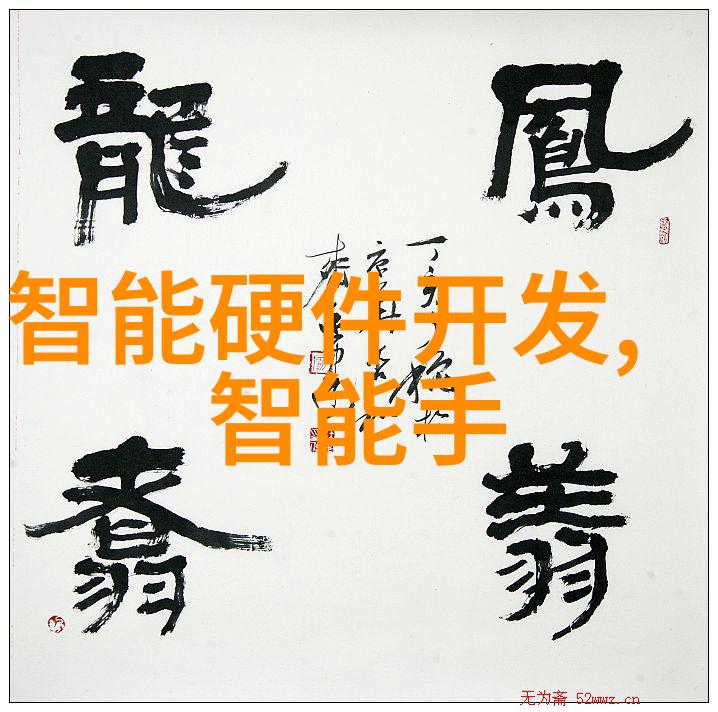 鳳翔
龍翥
智能硬件开发,
智能手
无为斋 52wwz.cn